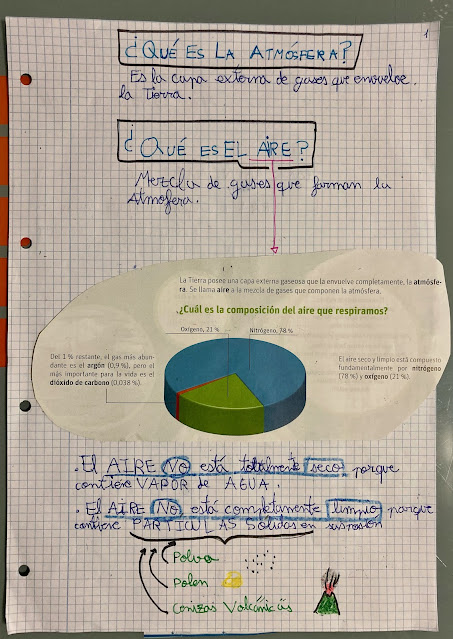 1
¿QUÉ ES LA ATMÓSFERA?
Es la capa externa de gases que envuelve
la Tierra.
¿QUÉ ES EL AIRE?
Mezcla de gases que forman la
Atmofera.
La Tierra posee una capa externa gaseosa que la envuelve completamente, la atmósfe-
ra. Se llama aire a la mezcla de gases que componen la atmósfera.
¿Cuál es la composición del aire que respiramos?
Oxígeno, 21 %
Nitrógeno, 78 %
Del 1 % restante, el gas más abun-
dante es el argón (0,9 %), pero el
más importante para la vida es el
dióxido de carbono (0,038 %).
El aire seco y limpio está compuesto
fundamentalmente por nitrógeno
(78 %) y oxígeno (21 %).
. El AIRE NO está totalmente seco porque
contiene VAPOR de AGUA.
. El AIRE NO está completamente limpio porque
contiene PARTICULAS Sólidas en suspesión
Polvo
Polen
Conizas Volcánicas